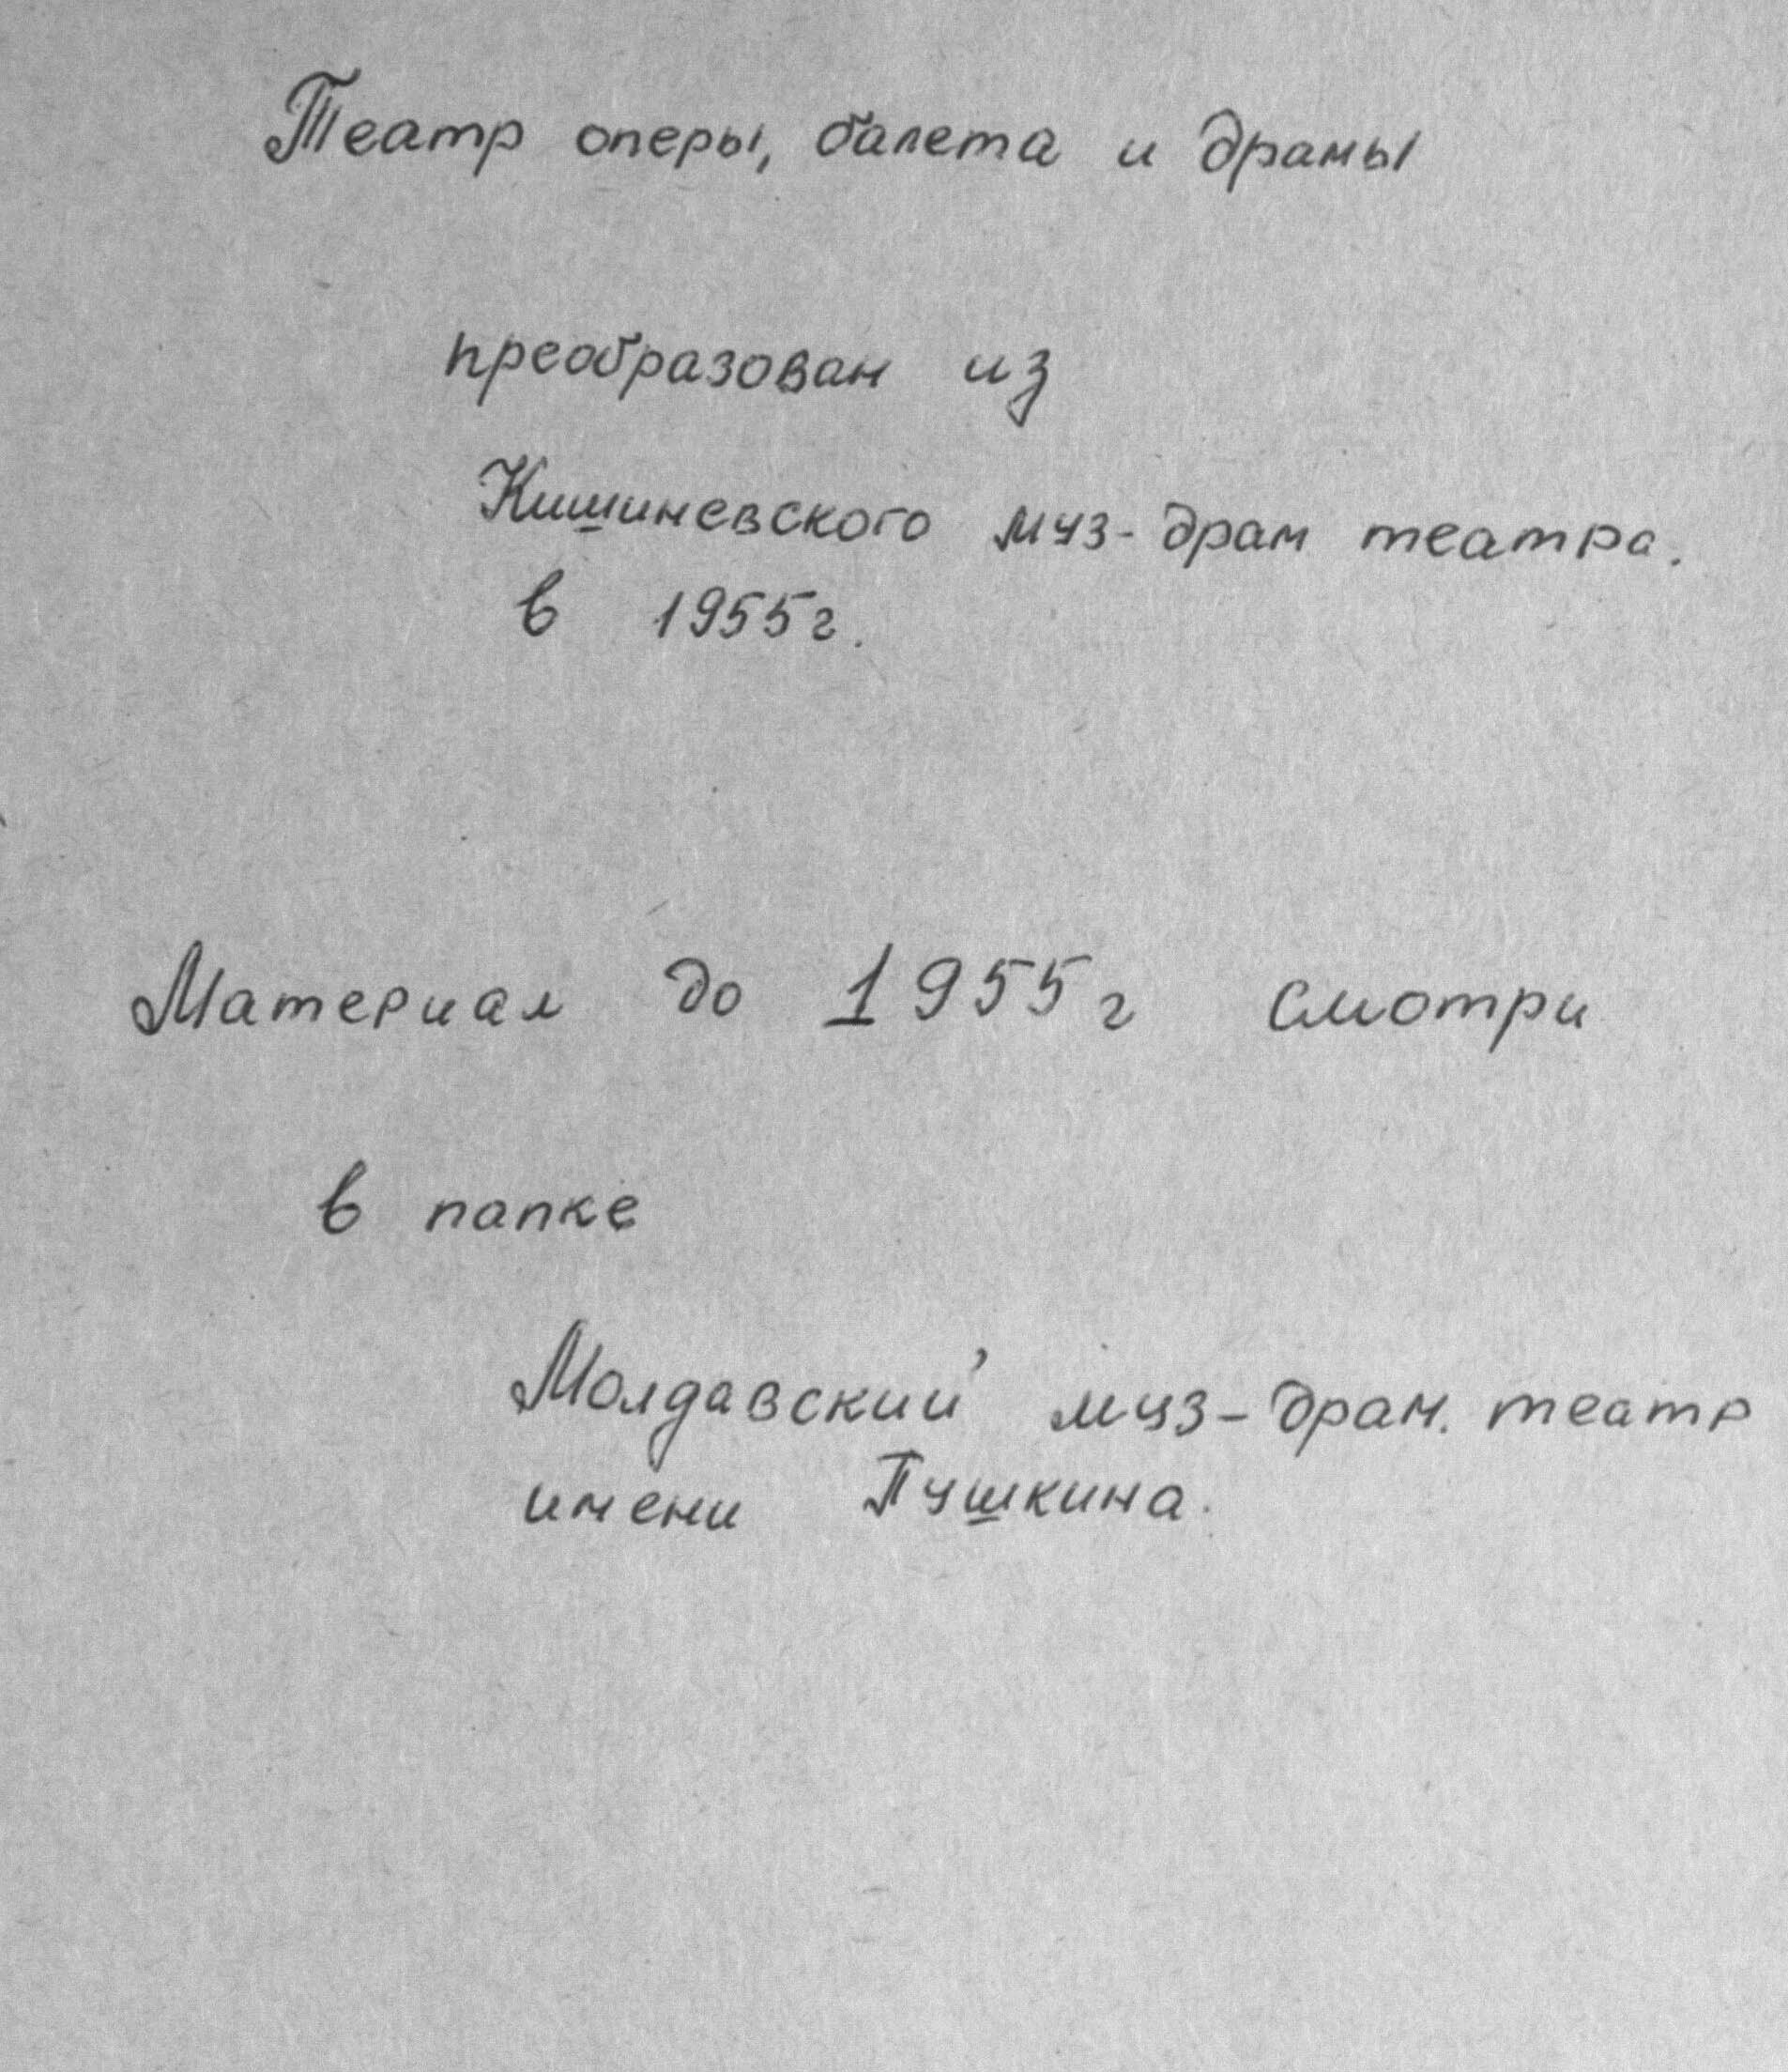 Театр оперы, балета и драмы
преобразован из
Кишиневского муз-драм театра.
в 1955г.
Материал до 1955г смотри
в папке
Молдавский муз-драм. театр
имени Пушкина.